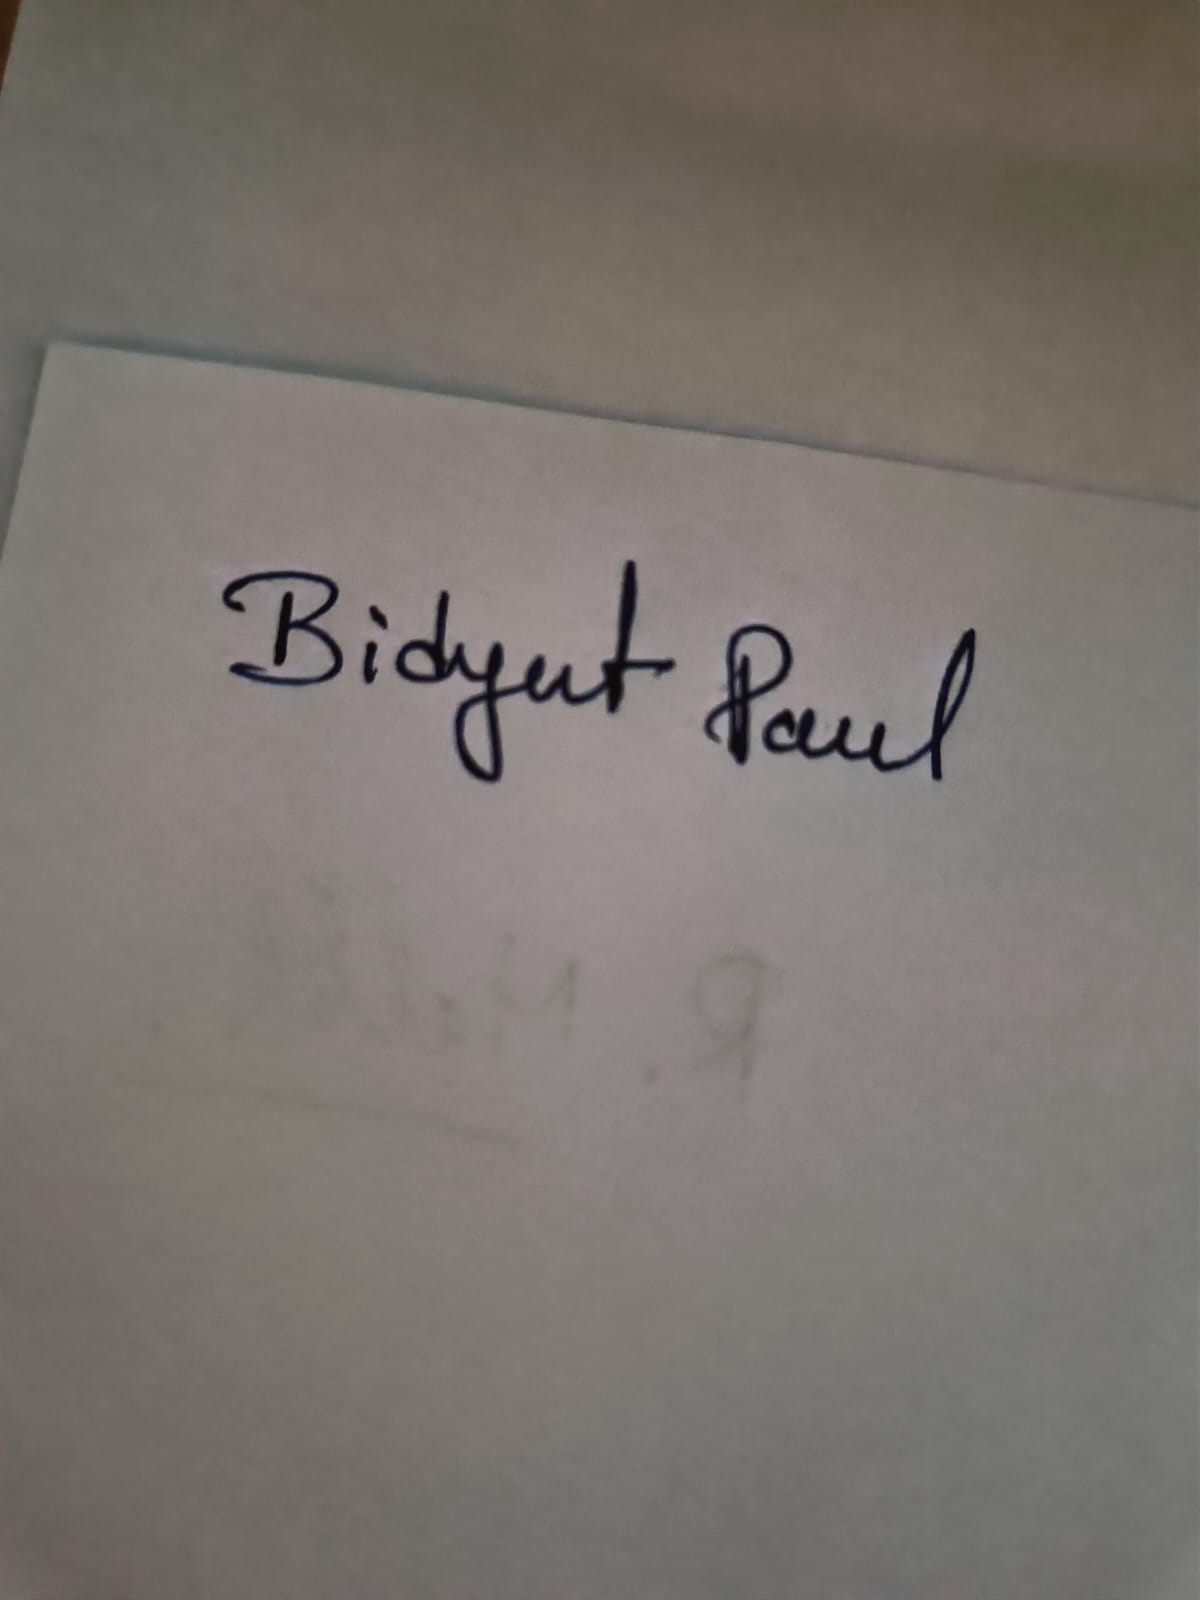 Bidyut Paul